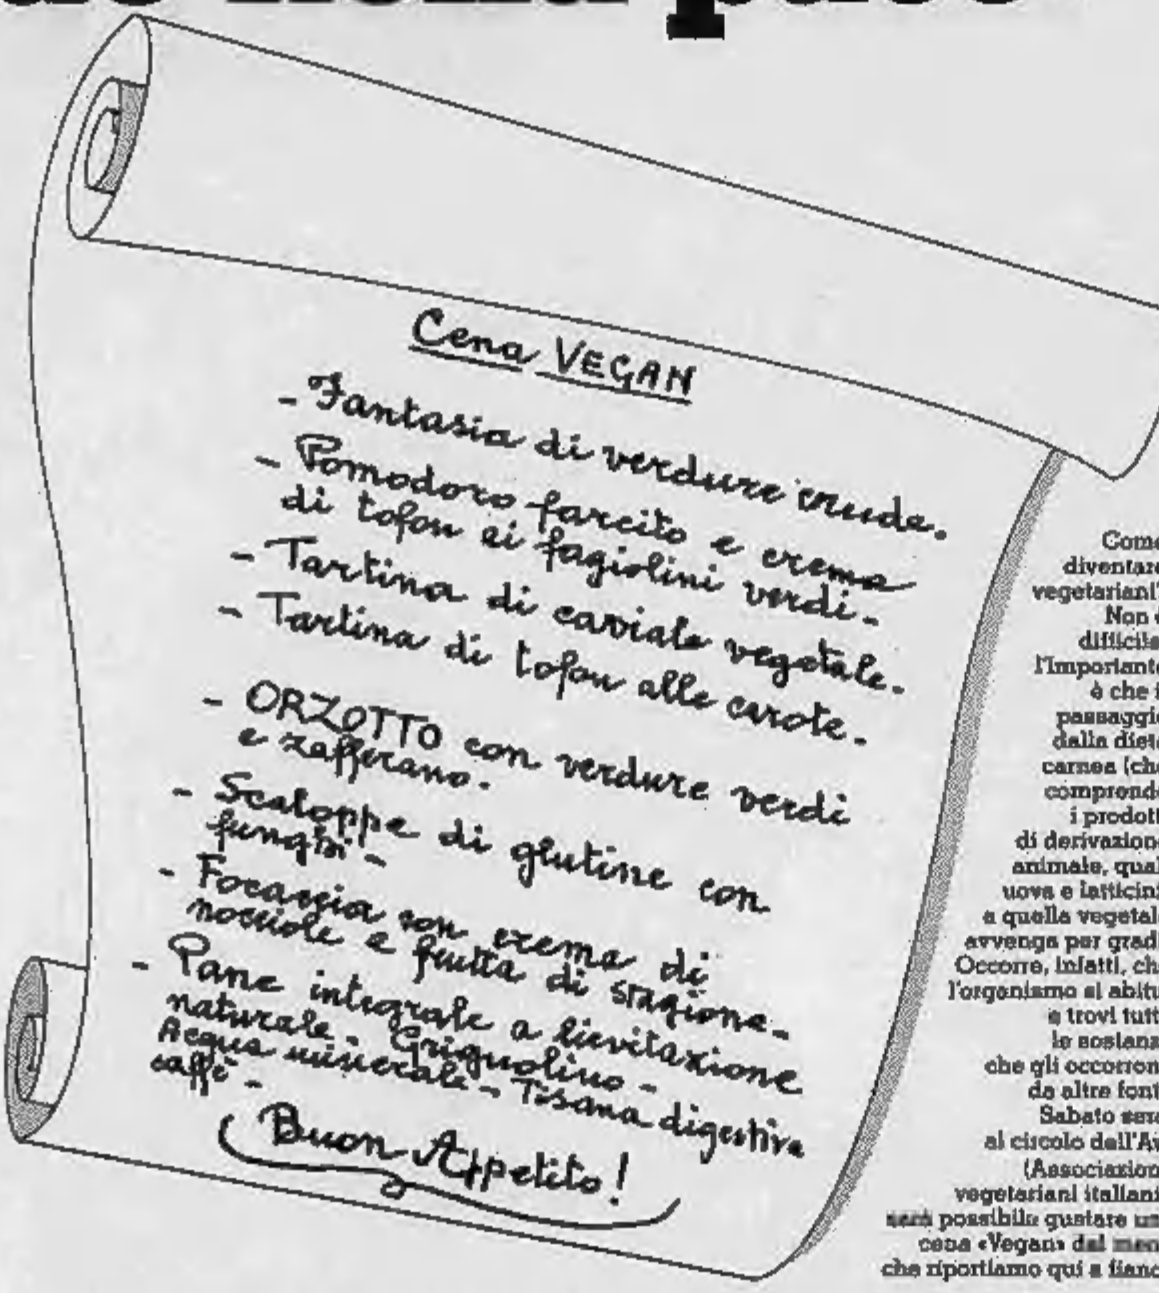 Cena VEGAN
- Fantasia di verdure crude.
- Pomodoro farcito e crema
di tofou ai fagiolini verdi -
- Tartina di caviale vegetale.
- Tartina di tofou alle carote.
- ORZOTTO con verdure verdi
e zafferano.
- Scaloppe di glutine con
funghi -
- Focaccia con crema di
nocciole e frutta di stagione -
- Pane integrale a lievitazione
naturale - Grignolino -
Acqua minerale - Tisana digestiva
caffè -
Buon Appetito!
Come
diventare
vegetariani?
Non
difficile
l'importante
è che
passaggio
dalla dieta
carnea (che
comprende
i prodott
di derivazione
animale, qual
uova e latticini
a quella vegetal
avvenga per gradi
Occorre, infatti, ch
l'organismo si abitu
e trovi tutt
le sostanz
che gli occorron
da altre font
Sabato sera
al circolo dell'Av
(Association
vegetariani italiani
sarà possibile gustare un
cena «Vegan» dal men
che riportiamo qui a fianc